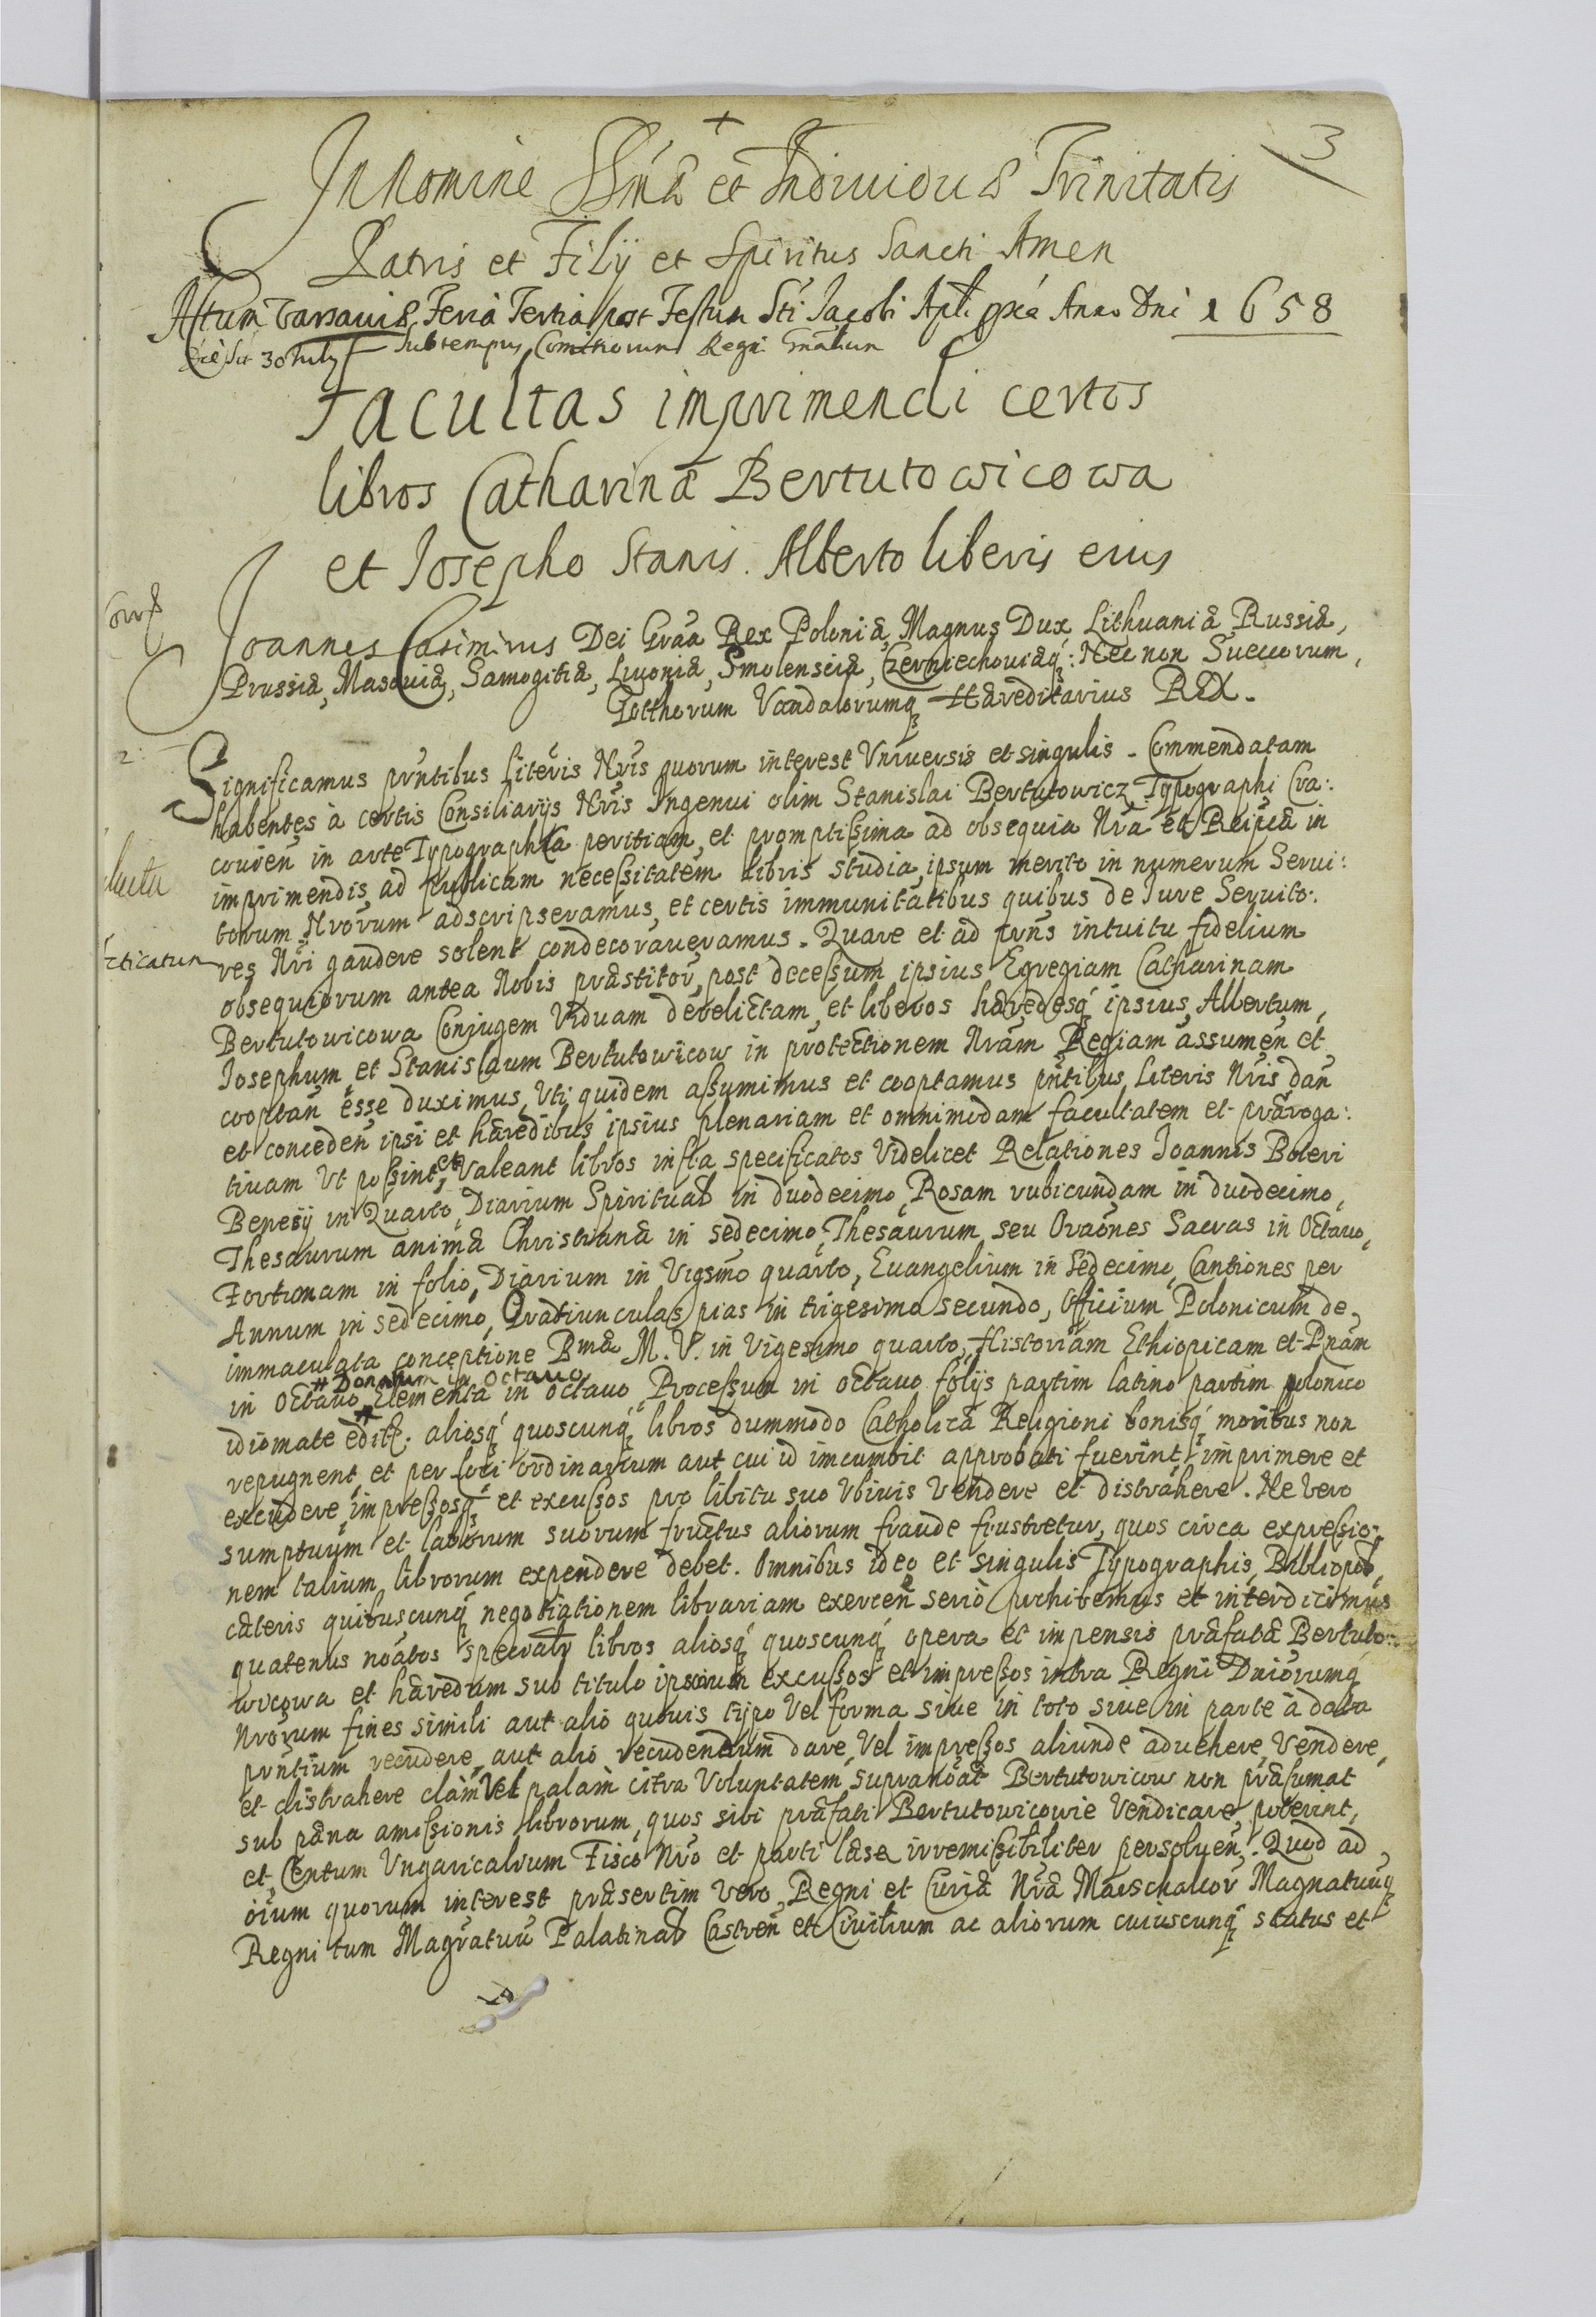 3
In Nomine SSmæ et Indiuiduæ Trinitatis
Patris et Filÿ et Spiritus Sancti Amen
Actum Varsauiæ Feria Tertia post Festum Sti Jacobi Apli pxa Anno Dni 1658
die scil 30 July Sub tempus Comitiorum Regni Gnalium
Facultas imprimendi certos
libros Catharinæ Bertutowicowa
et Josepho Stanis. Alberto liberis eius
Joannes Casimirus Dei Graa Rex Poloniæ, Magnus Dux Lithuaniæ Russiæ,
Prussiæ, Masouiæ, Samogitiæ, Liuoniæ, Smolensciæ, Czerniechouiæq: Nec non Suecorum,
Gotthorum Vandalorumq Hæreditarius REX.
2:
Significamus pntibus Literis Nris quorum interest Vniuersis et singulis. Commendatam
habentes à certis Consiliarijs Nris Ingenui olim Stanislai Bertutowicz, Typographi Cra:
couien in arte Typographica peritiam, et promptissima ad obsequia Nra et Reipcæ in
imprimendis, ad publicam necessitatem libris studia, ipsum merito in numerum Serui:
torum Nrorum adscripseramus, et certis immunitatibus quibus de Jure Seruito:
res Nri gaudere solent condecoraueramus. Quare et ad prns intuitu fidelium
obsequiorum antea Nobis præstitor, post decessum ipsius Egregiam Catharinam
Bertutowicowa Conjugem Viduam derelictam, et liberos hæredesq ipsius, Albertum,
Josephum, et Stanislaum Bertutowicow in protectionem Nram Regiam assumen et
cooptan esse duximus, Vti quidem assumimus et cooptamus pntibus Literis Nris dan
et conceden ipsi et hæredibus ipsius plenariam et omnimodam facultatem et præroga:
tiuam Vt possint, et Valeant libros infra specificatos Videlicet Relationes Joannis Boteri
Benesij in Quarto, Diarium Spirituale in duodecimo, Rosam rubicundam in duodecimo,
Thesaurum animæ Christianæ in sedecimo, Thesaurum seu Oraones Sacras in Octauo,
Fortunam in folio, Diarium in Vigsmo quarto, Euangelium in Sedecimo, Cantiones per
Annum in sedecimo, Oratiunculas pias in trigesimo secundo, Officium Polonicum de
immaculata conceptione Bmæ M. V. in Vigesimo quarto, Historiam Ethiopicam et Pnam
# Donatum in Octauo
in Octauo, Elementa in octauo, Processum in octauo folijs partim latino partim polonico
idiomate edit. aliosq quoscunq libros dummodo Catholicæ Religioni bonisq moribus non
repugnent, et per loci ordinarium aut cui id incumbit approbati fuerint, imprimere et
excudere, impressosq et excussos pro libitu suo Vbiuis Vendere et distrahere. Ne vero
sumptuum et laborum suorum fructus aliorum fraude frustretur, quos circa expressio:
nem talium librorum expendere debet. Omnibus ideo et singulis Typographis, Bibliopol,
cæteris quibuscunq negotiationem librariam exercen serio prohibemus et interdicimus
quatenus noatos specialr libros aliosq quoscunq opera et impensis præfatæ Bertuto:
wicowa et hæredum sub titulo ipsorum excussos et impressos intra Regni Dniorumq
Nrorum fines simili aut alio quouis typo Vel forma siue in toto siue in parte à data
prntium recudere, aut alio recudendum dare, Vel impressos aliunde aduehere, Vendere,
et distrahere clàm Vel palam citra Voluntatem supranoat Bertutowicow non præsumat
sub pæna amissionis librorum, quos sibi præfati Bertutowicowie Vendicare poterint,
et Centum Vngaricalium Fisco Nro et parti læsæ irremissibiliter persoluen. Quod ad
oium quorum interest præsertim Vero, Regni et Curiæ Nræ Marschallor Magnatuuq
Regni tum Magratuu Palatinal Castren et Ciuilium ac aliorum cuiuscunq status et